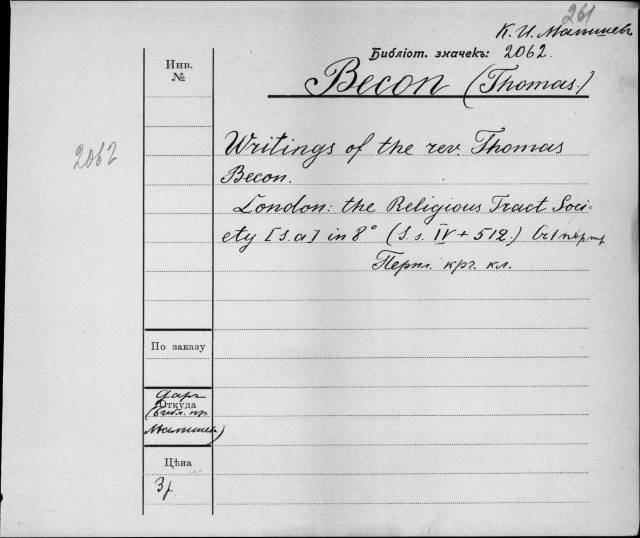 261
К. И. Малышевъ
Библіот. значекъ: 2062.
Becon (Thomas.)
Инв.
№
2062
Writings of the rev. Thomas
Becon.
London: the Religious Tract Soci-
ety [s.a] in 8° (S.s. IV + 512.) Съ 1 портр
Перпл. крг. кл.
По заказу
Даръ
Откуда
(библ. пр.
Малышева)
Цѣна
3 р.